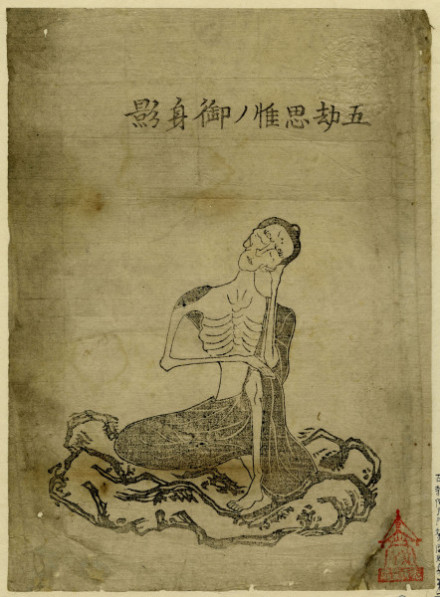 五劫思惟ノ御身影